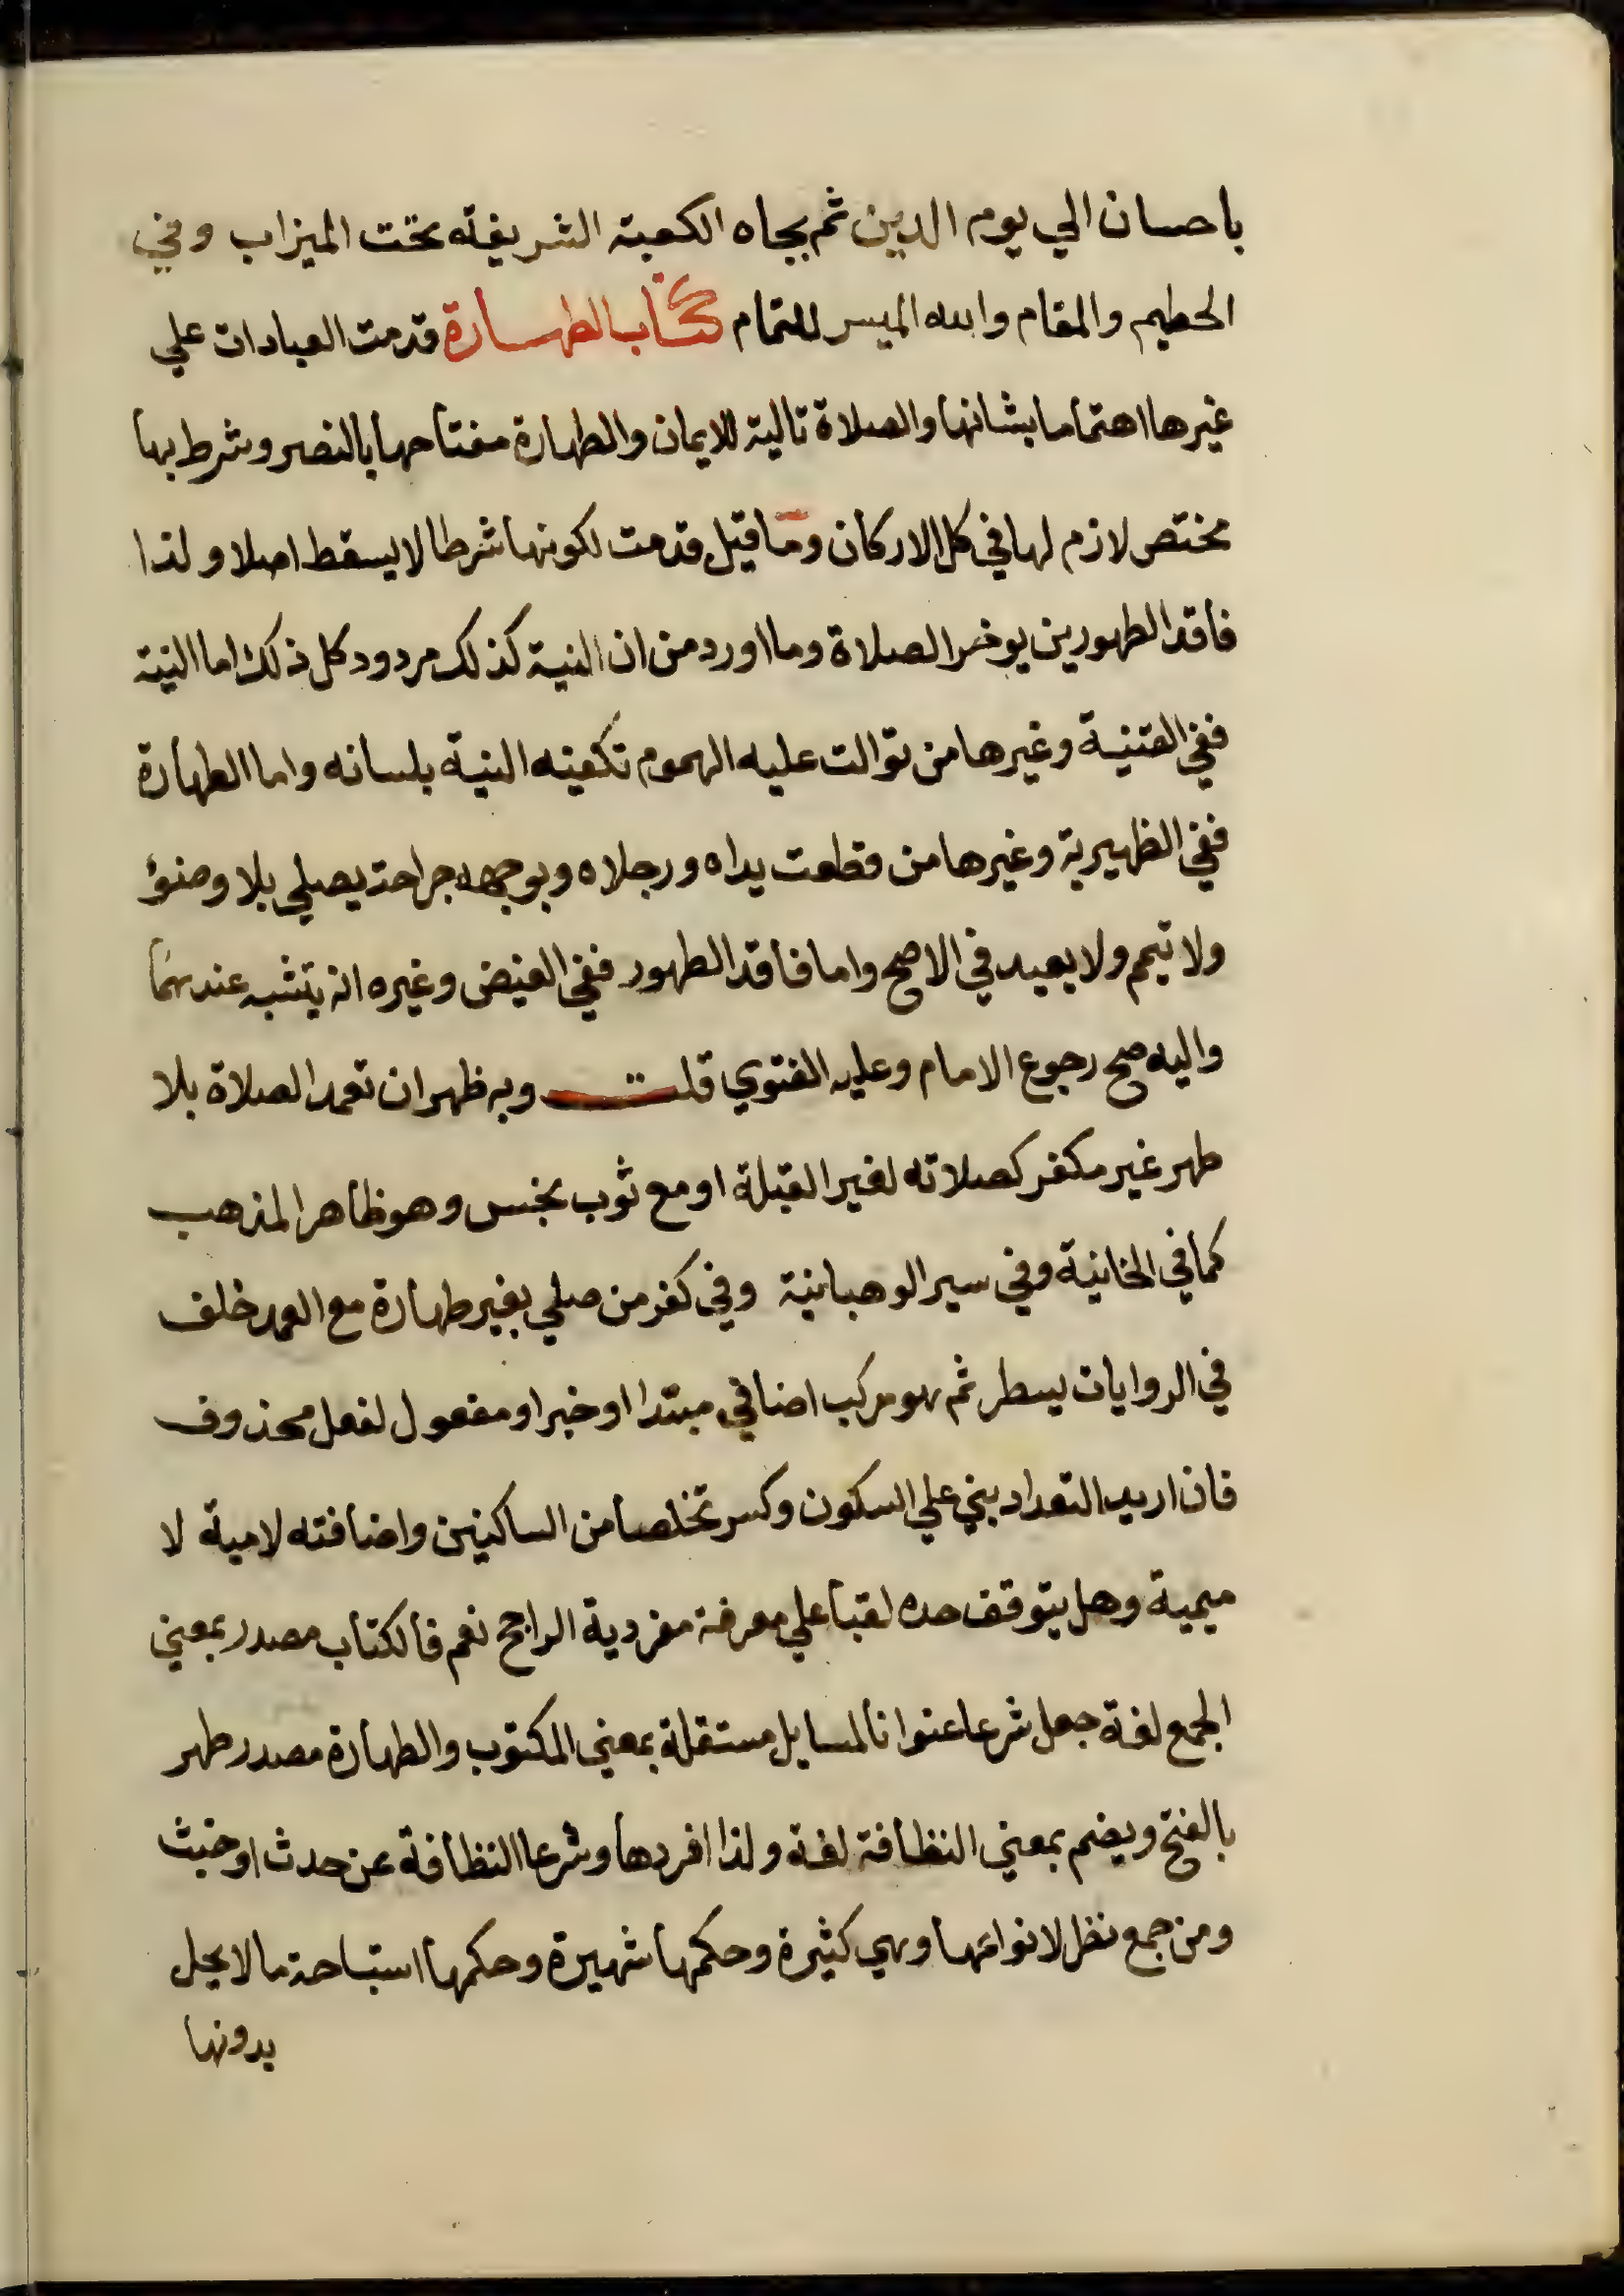 باحسان الي يوم الدين ثم تجاه الكعبة الشريفة تحت الميزاب وفي
الحطيم والمقام والله الميسر للتمام كتاب الطهارة قدمت العبادات علي
غيرها اهتماما بشانها والصلاة تالية للايمان والطهارة مفتاحها بالنص وشرط بها
مختص لازم لها في كل الاركان وما قيل قدمت لكونها شرطا لا يسقط اصلا ولذا
فاقد الطهورين يوخر الصلاة وما اورد من ان النية كذلك مردود كل ذلك اما النية
ففي القنية وغيرها من توالت عليه الهموم تكفيه النية بلسانه واما الطهارة
ففي الظهيرية وغيرها من قطعت يداه ورجلاه وبوجهه جراحة يصلي بلا وضوء
ولا تيمم ولا يعيد في الاصح واما فاقد الطهور ففي الفيض وغيره انه يتشبه عندهما
واليه صح رجوع الامام وعليه الفتوي قلت وبه ظهر ان تعمد الصلاة بلا
طهر غير مكفر كصلاته لغير القبلة او مع ثوب نجس وهو ظاهر المذهب
كما في الخانية وفي سير الوهبانية وفي كفر من صلي بغير طهارة مع العمد خلف
في الروايات يسطر ثم هو مركب اضافي مبتدا او خبر او مفعول لفعل محذوف
فان اريد التعداد بني علي السكون وكسر تخلصا من الساكنين واضافته لامية لا
ميمية وهل يتوقف حده لقبا علي معرفة مفردية الراجح نعم فالكتاب مصدر بمعني
الجمع لغة جعل شرعا عنوانا لمسايل مستقلة بمعني المكتوب والطهارة مصدر طهر
بالفتح ويضم بمعني النظافة لغة ولذا افردها وشرعا النظافة عن حدث او خبث
ومن جمع نظر لانواعها وهي كثيرة وحكمها شهيرة وحكمها استباحة ما لا يحل
بدونها